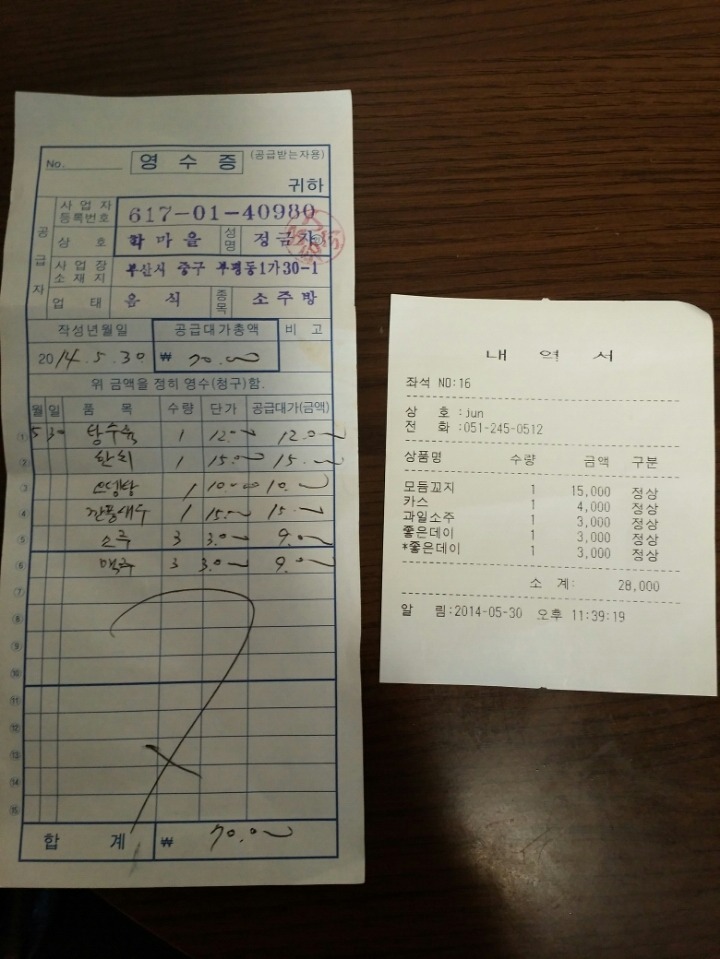 No.
영 수 증
(공급받는자용)
귀하
공급자
사업자 등록번호 617-01-40980
상 호 학마을 성명 정금자
사업장 소재지 부산시 중구 부평동1가30-1
업 태 음 식 종목 소주방
작성년월일 공급대가총액 비 고
2014.5.30 ₩ 70.00
위 금액을 정히 영수(청구)함.
월 일 품 목 수량 단가 공급대가(금액)
① 5 30 탕수육 1 12.0 12.0
② 한치 1 15.0 15.
③ 오뎅탕 1 10.00 10.
④ 깐풍새우 1 15.0 15.
⑤ 소주 3 3.0 9.0
⑥ 맥주 3 3.0 9.0
⑦
⑧
⑨
⑩
⑪
⑫
⑬
⑭
⑮
합 계 ₩ 70.0
내 역 서
좌석 NO:16
상 호 :Jun
전 화 :051-245-0512
상품명 수량 금액 구분
모듬꼬지 1 15,000 정상
카스 1 4,000 정상
과일소주 1 3,000 정상
좋은데이 1 3,000 정상
*좋은데이 1 3,000 정상
소 계: 28,000
알 림:2014-05-30 오후 11:39:19